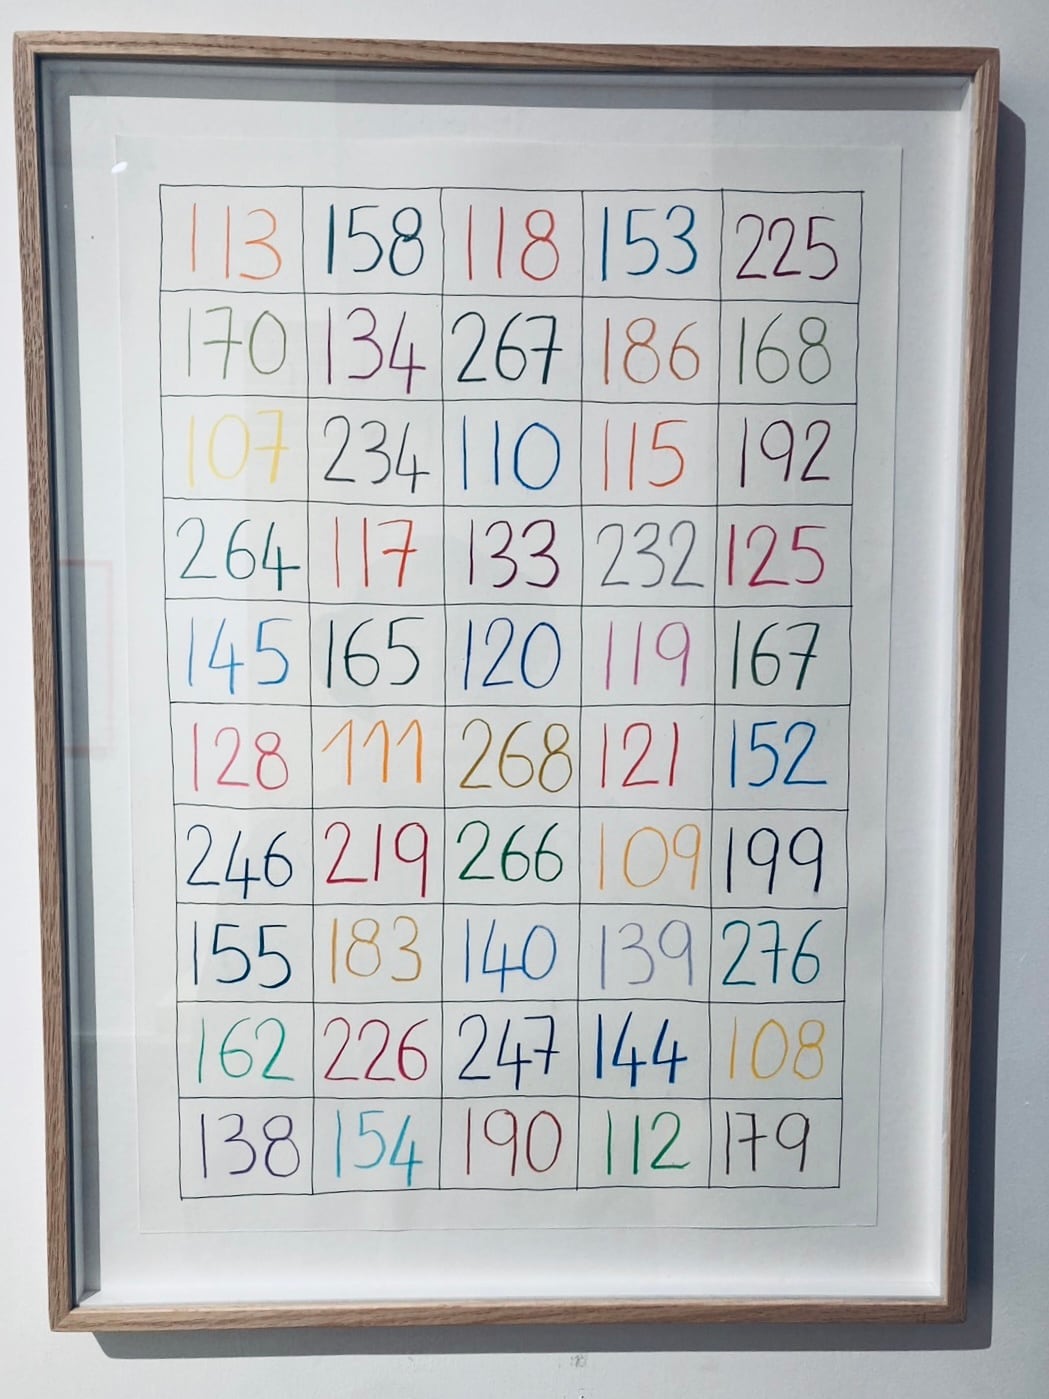 113 158 118 153 225
170 134 267 186 168
107 234 110 115 192
264 117 133 232 125
145 165 120 119 167
128 111 268 121 152
246 219 266 109 199
155 183 140 139 276
162 226 247 144 108
138 154 190 112 179